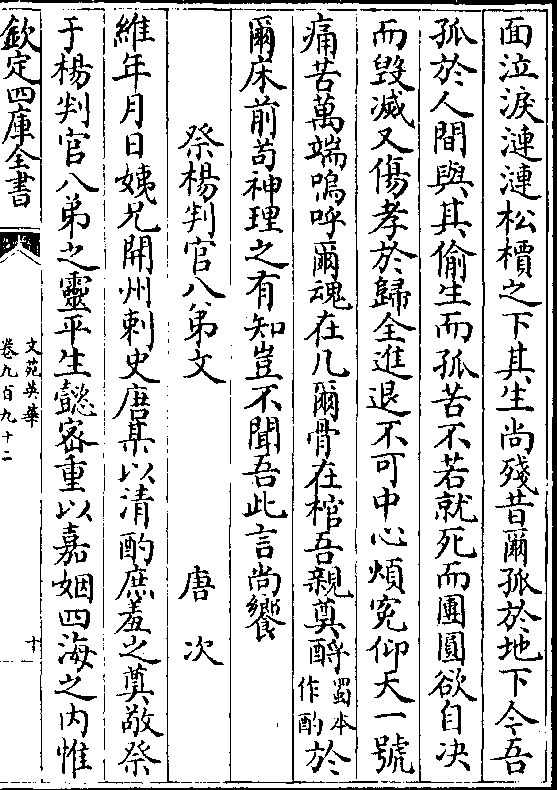 面泣淚漣漣松檟之下其生尚殘昔爾孤於地下今吾
孤於人間與其偷生而孤苦不若就死而團圓欲自决
而毀滅又傷孝於歸全進退不可中心煩寃仰天一號
痛苦萬端嗚呼爾魂在几爾骨在棺吾親奠酹蜀本作酌於
爾床前苟神理之有知豈不聞吾此言尚饗
祭楊判官八弟文　唐次
維年月日姨兄開州刺史唐某以清酌庶羞之奠敬祭
于楊判官八弟之靈平生懿密重以嘉姻四海之内惟
欽定四庫全書
文苑英華
卷九百九十二
十